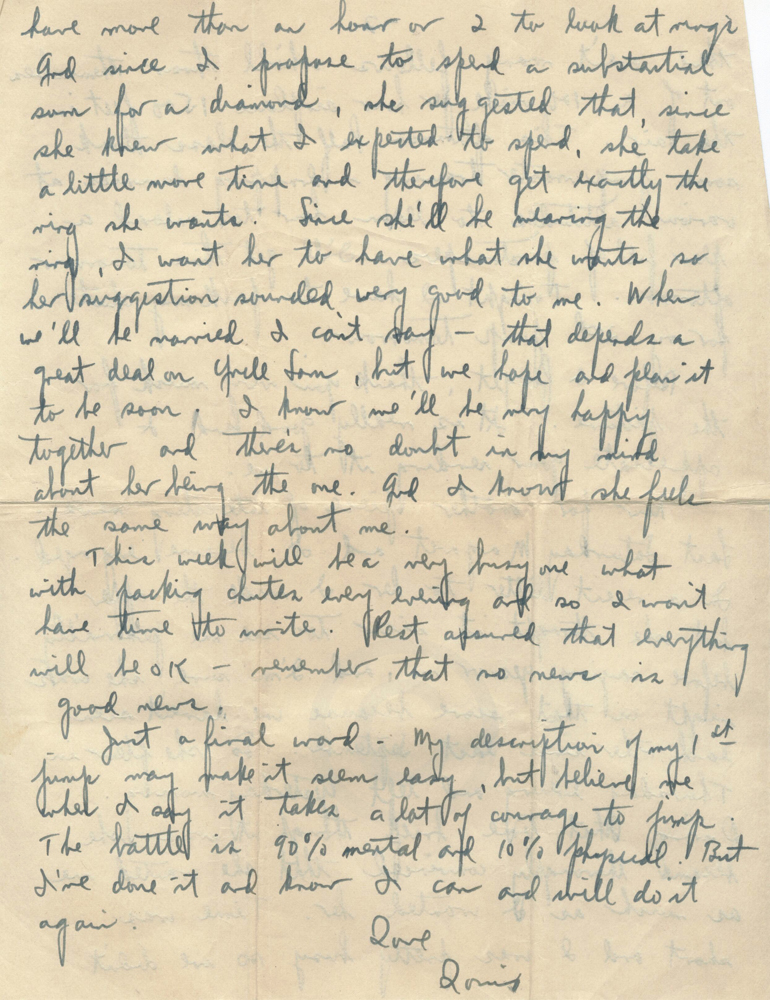 have more than an hour or 2 to look at rings
And since I propose to spend a substantial
sum for a diamond, she suggested that, since
she knew what I expected to spend, she take
a little more time and therefore get exactly the
ring she wants. Since she'll be wearing the
ring, I want her to have what she wants so
her suggestion sounded very good to me. When
we'll be married I can't say — that depends a
great deal on Uncle Sam, but we hope and plan it
to be soon. I know we'll be very happy
together and there's no doubt in my mind
about her being the one. And I know she feels
the same way about me.
This week will be a very busy one what
with packing chutes every evening and so I won't
have time to write. Rest assured that everything
will be OK — remember that no news is
good news.
Just a final word - My description of my 1st
jump may make it seem easy, but believe me
when I say it takes a lot of courage to jump.
The battle is 90% mental and 10% physical. But
I've done it and know I can and will do it
again.
Love
Louis